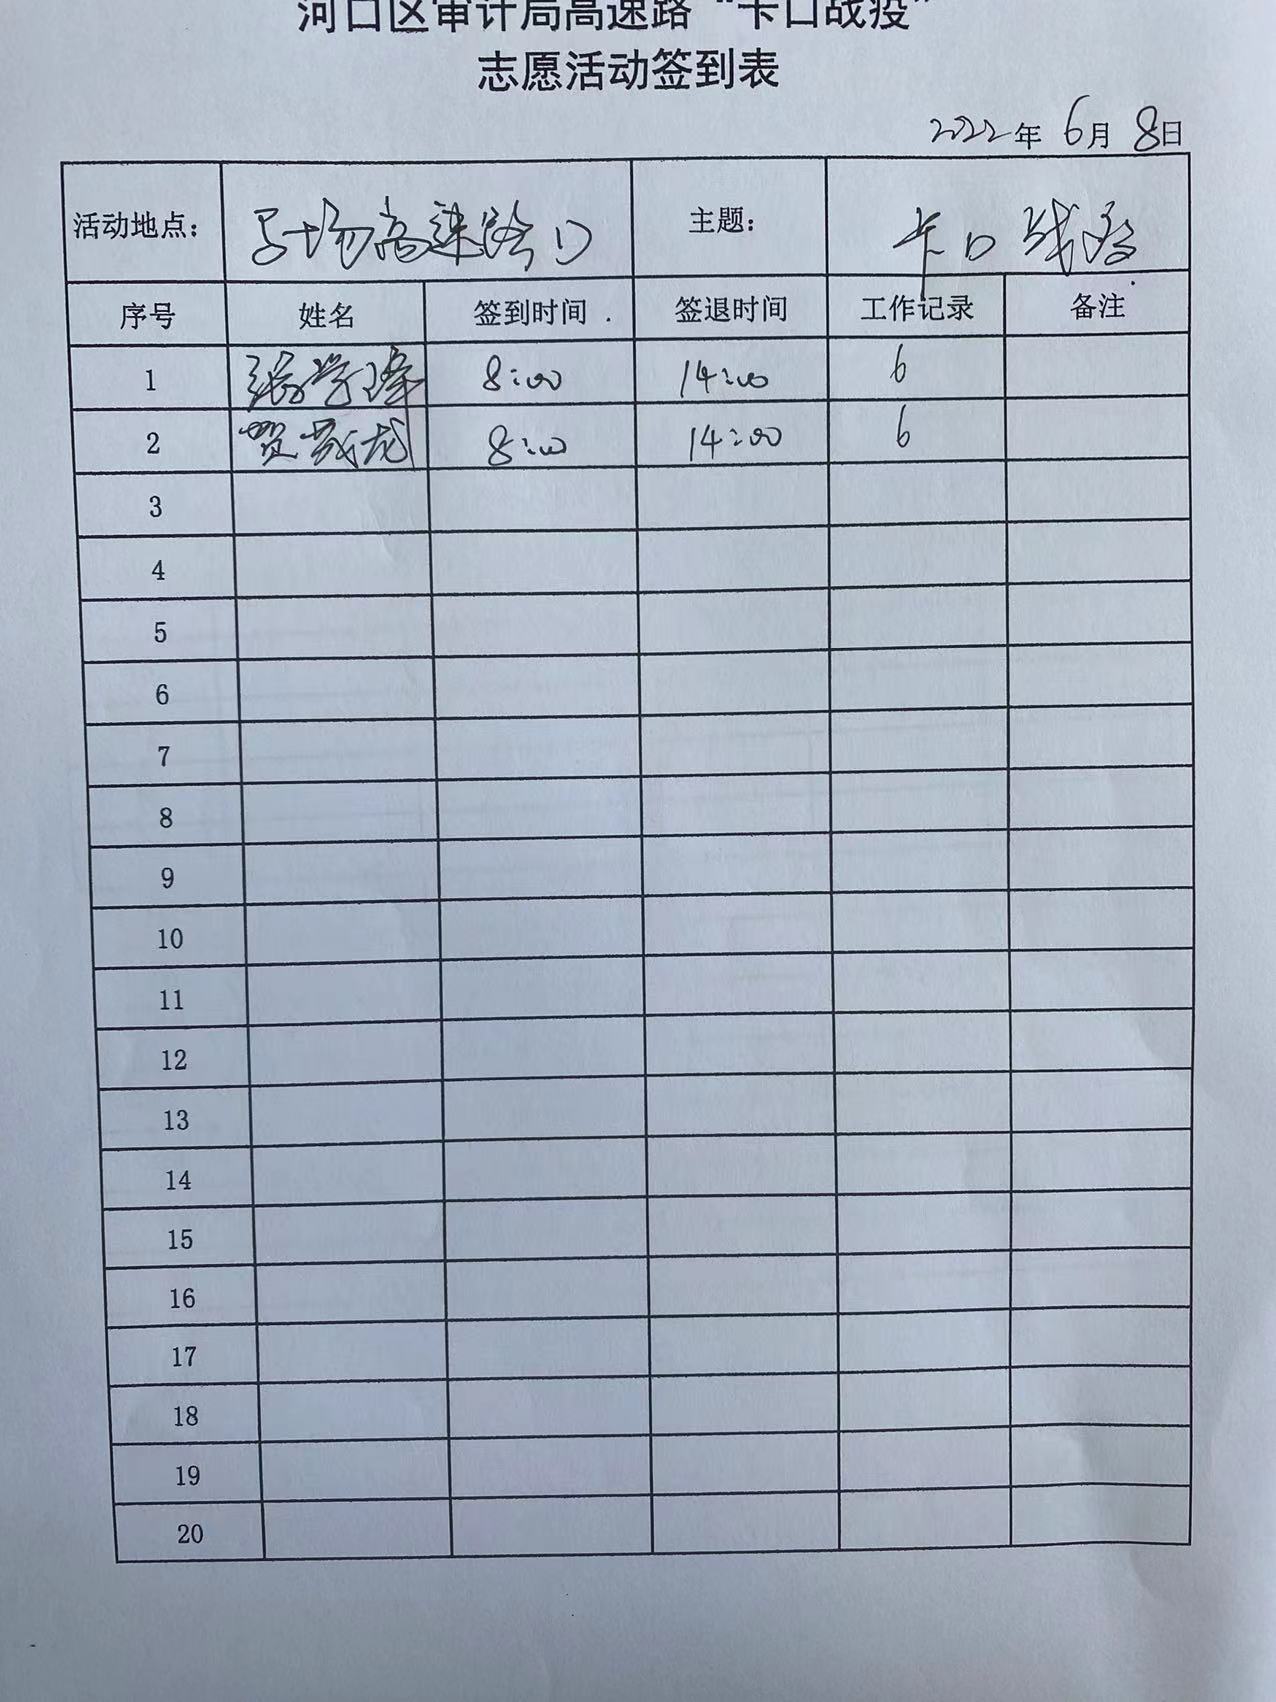 河口区审计局高速路“卡口战疫”
志愿活动签到表
2022年 6月 8日
活动地点： 马场高速路口 主题： 卡口战疫
序号 姓名 签到时间 签退时间 工作记录 备注
1 张学峰 8:00 14:00 6
2 贾 龙 8:00 14:00 6
3
4
5
6
7
8
9
10
11
12
13
14
15
16
17
18
19
20